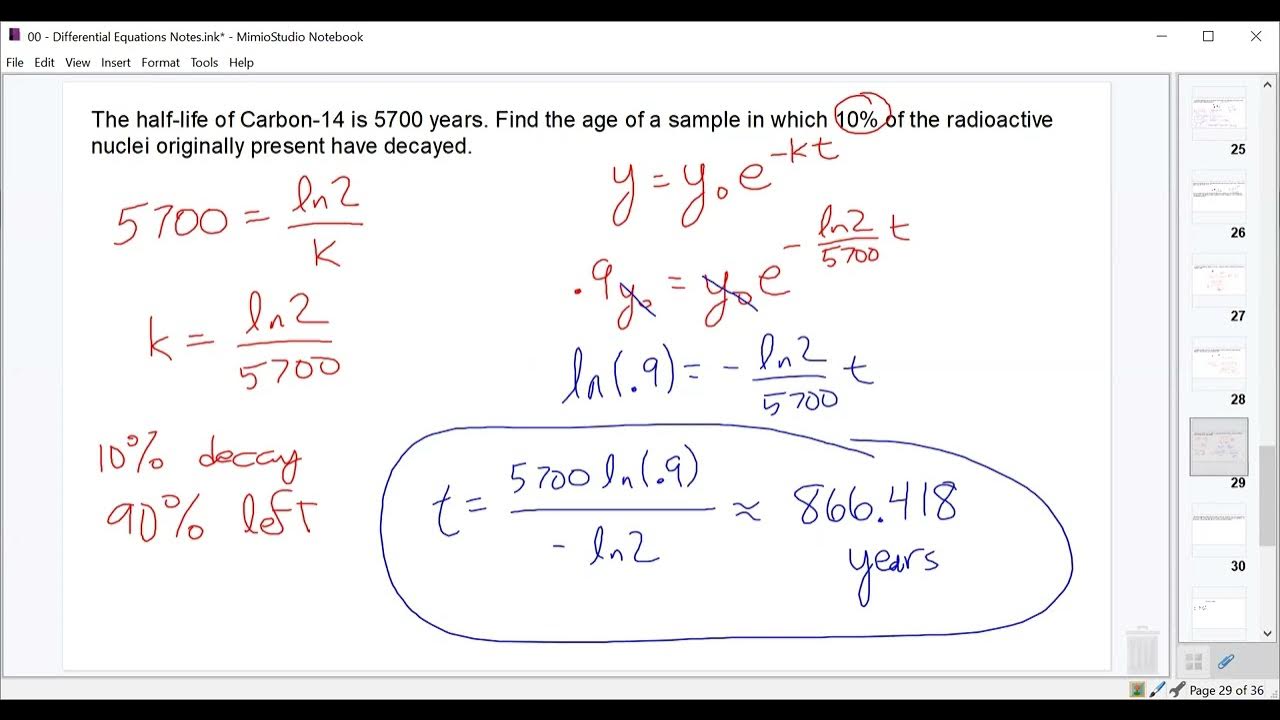 00 - Differential Equations Notes.ink* - MimioStudio Notebook
File Edit View Insert Format Tools Help
The half-life of Carbon-14 is 5700 years. Find the age of a sample in which 10% of the radioactive
nuclei originally present have decayed.
5700 = ln2/k
k = ln2/5700
10% decay
90% left
y = y₀e^(-kt)
.9y₀ = y₀e^(-ln2/5700 t)
ln(.9) = - ln2/5700 t
t = 5700 ln(.9)/-ln2 ≈ 866.418
years
25
26
27
28
29
30
Page 29 of 36